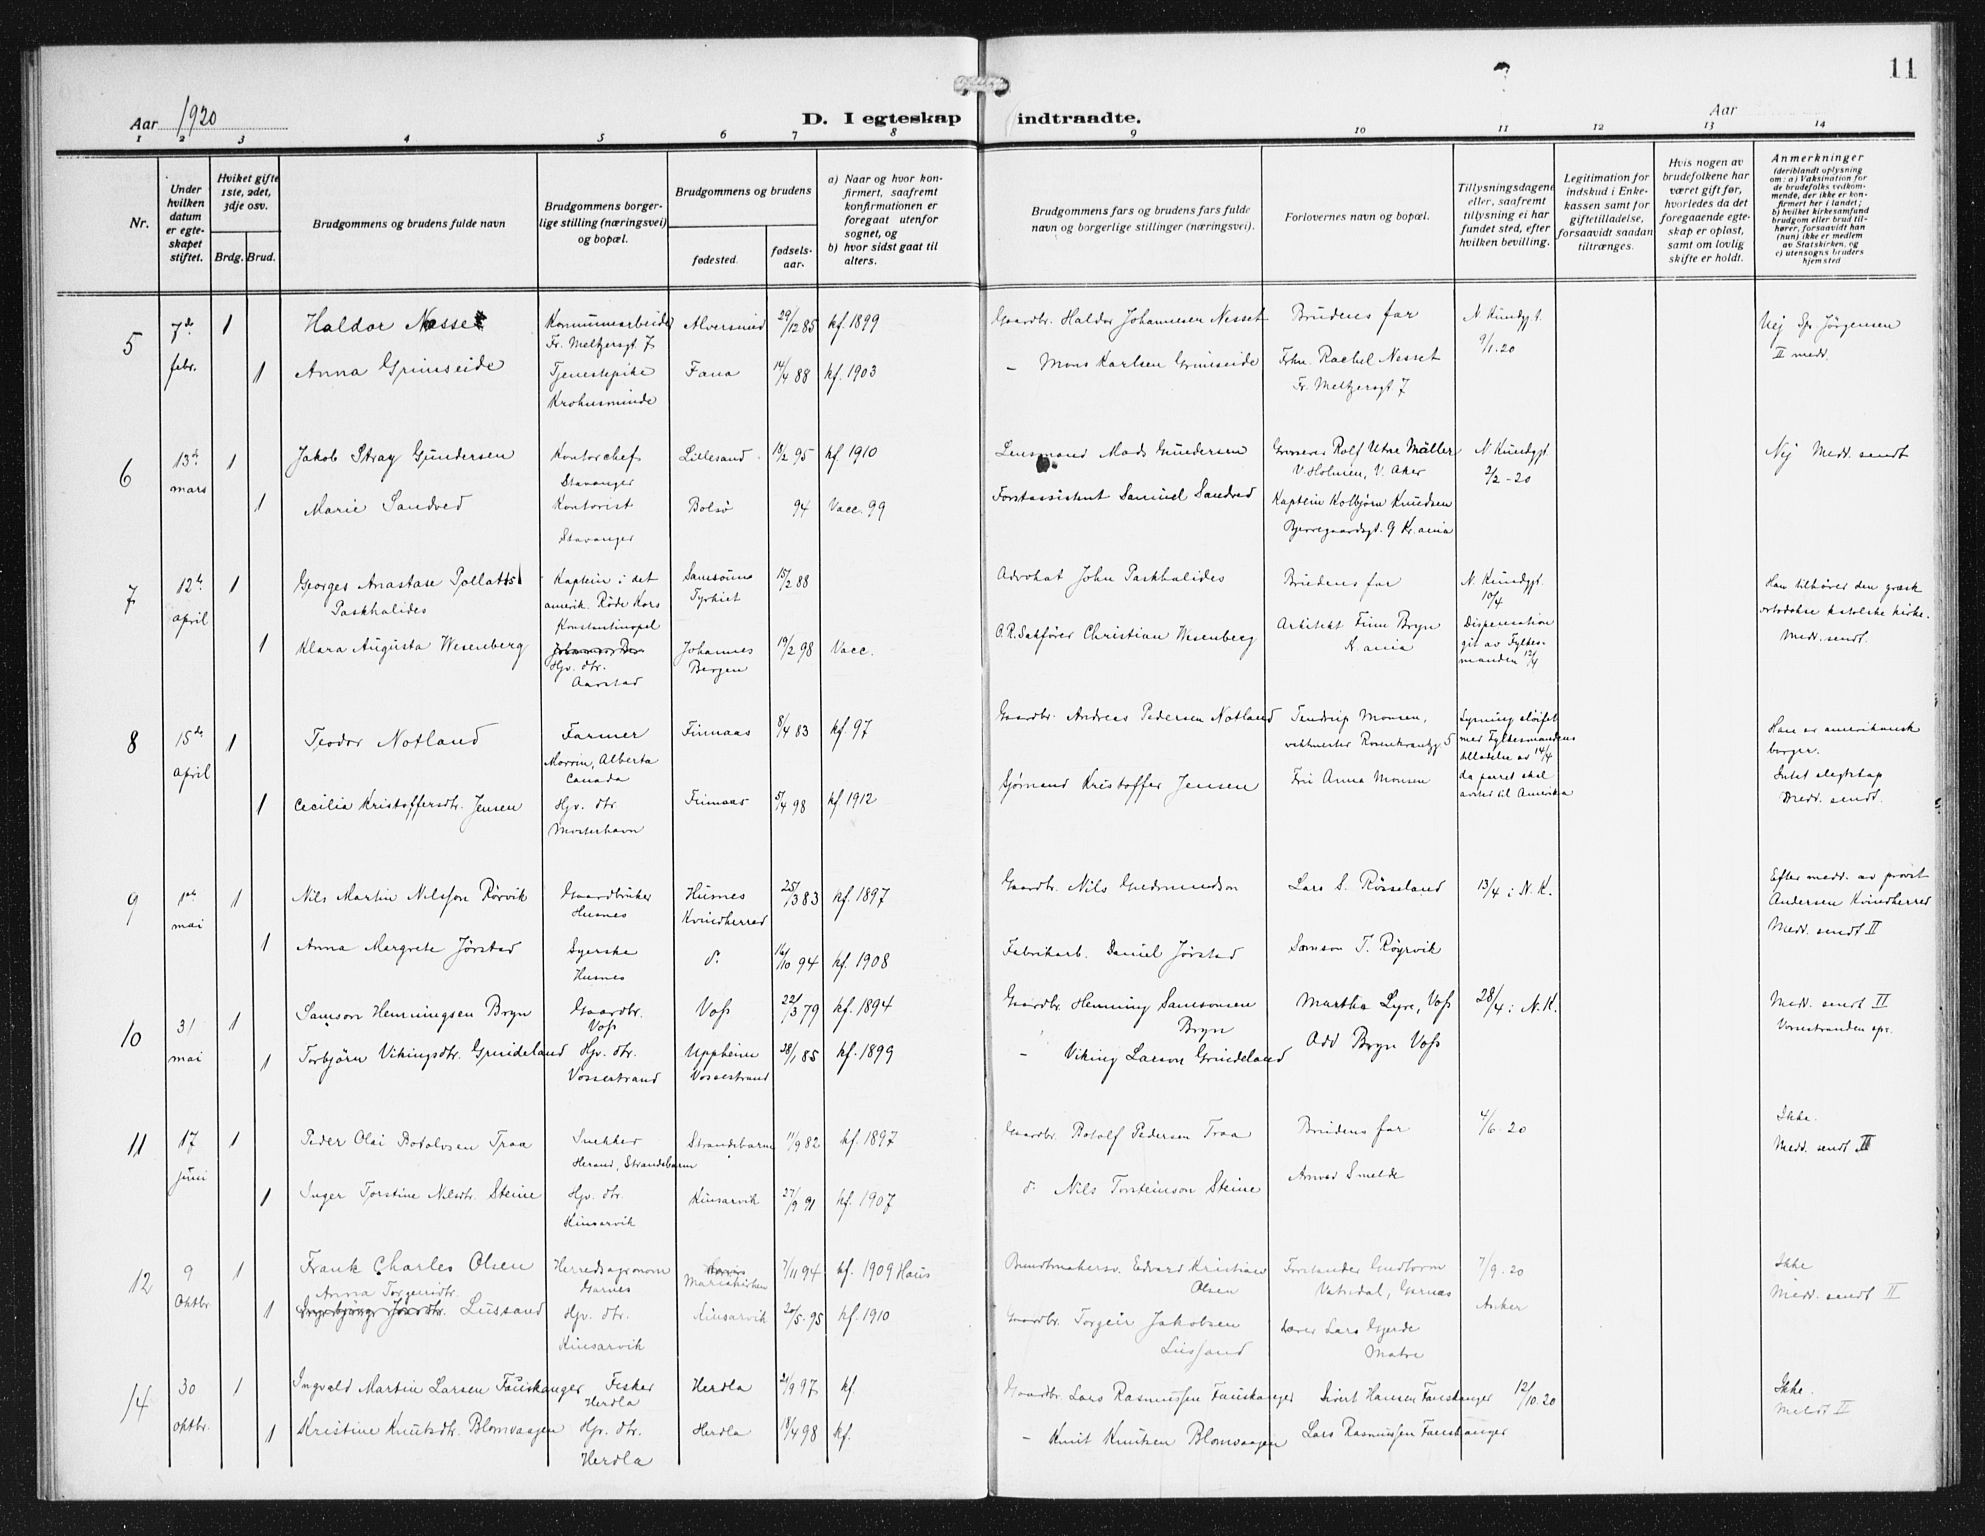 11
Aar 1920
D. I egteskap indtraadte.
Aar
1 2 3 4 5 6 7 8 9 10 11 12 13 14
Nr.
Under hvilken datum er egte-skapet stiftet.
Hviket gifte 1ste, 2det, 3dje osv.
Brdg. Brud.
Brudgommens og brudens fulde navn
Brudgommens borger-lige stilling (næringsvei) og bopæl.
Brudgommens og brudens
fødested.
fødsels-aar.
a) Naar og hvor kon-firmert, saafremt konfirmationen er foregaat utenfor sognet, og
b) hvor sidst gaat til alters.
Brudgommens fars og brudens fars fulde navn og borgerlige stillinger (næringsvei).
Forlovernes navn og bopæl.
Tillysningsdagene eller, saafremt tillysning ei har fundet sted, efter hvilken bevilling.
Legitimation for indskud i Enke-kassen samt for giftetilladelse, forsaavidt saadan tiltrænges.
Hvis nogen av brudefolkene har været gift før, hvorledes da det foregaaende egte-skap er opløst, samt om lovlig skifte er holdt.
Anmerkninger (deriblandt oplysning om: a) Vaksination for de brudefolks vedkom-mende, der ikke er kon-firmert her i landet; b) hvilket kirkesamfund brudgom eller brud til-hører, forsaavidt han (hun) ikke er medlem av Statskirken, og c) utensogns bruders hjemsted
5 7de febr. 1 Haldor Nesset Kommunearbeider Fr. Meltzersgt 7 Alversund 29/12 85 kf. 1899 Gaardbr. Haldor Johannesen Nesset Brudens far N. Kundgj. 9/1.20 Nej Sp. Jörgensen II medd.
1 Anna Grimseide Tjenestepike Krohnsminde Fana 14/4 88 kf. 1903 – Mons Karlsen Grimseide Frkn. Rachel Nesset Fr. Meltzersgt 7
6 13de mars 1 Jakob Stray Gundersen Kontorchef Stavanger Lillesand 19/2 95 kf 1910 Lensmand Mads Gundersen Grosserer Rolf Utne Müller V. Holmen, V. Aker N Kundgj. 2/2-20 Nej Medd. sendt
1 Marie Sandved Kontorist Stavanger Bolsö 94 Vacc. 99 Forstassistent Samuel Sandved Kaptein Kolbjørn Knudsen Bjerregaardsgt. 9 Kr.ania
7 12te april 1 Georges Anastase Paskhalides Kaptein i det amerik. Røde Kors Konstantinopel Samsoun Tyrkiet 15/2 88 Advokat John Paskhalides Brudens far N. Kundgj. 10/4 Han tilhører den græsk ortodokse katolske kirke. Medd. sendt.
1 Klara Augusta Wesenberg Hjv. dtr. Aarstad Johannes Bergen 19/2 98 Vacc. O.R.Sakfører Christian Wesenberg Arkitekt Finn Bryn K.ania Dispensation git av Fylkes-manden 12/4
8 15de april 1 Teodor Notland Farmer Morrin, Alberta Canada Finnaas 8/4 83 kf. 97 Gaardbr. Andreas Pedersen Notland Tendrup Monsen, vektmester Rosenkrantzg. 5 Lysning sløifet med Fylkesmandens tilladelse av 14/4 da parret skal avsted til Amerika Han er amerikansk borger. Intet slegtskap Medd. sendt.
1 Cecilia Kristoffersdtr. Jensen Hjv. dtr. Mosterhavn Finnaas 5/4 98 kf 1912 Sjømand Kristoffer Jensen Fru Anna Monsen
9 1ste mai 1 Nils Martin Nilssen Rørvik Gaardbruker Husnes Husnes Kvindherred 25/3 83 kf. 1897 Gaardbr. Nils Gudmundson Lars S. Røsseland 13/4 i N. K. Efter medd. av provst Andersen Kvindherred Medd. sendt II
1 Anna Margrete Jørstad Syerske Husnes d. 16/10 94 kf. 1908 Fabrikarb. Daniel Jørstad Samson T. Røyrvik
10 31 mai 1 Samson Henningsen Bryn Gaardbr. Voss Voss 22/3 79 kf. 1894 Gaardbr. Henning Samsonsen Bryn Martha Lyre, Voss 28/4 i N.K. Medd. sendt II Vossestranden spr.
1 Torbjörn Vikingsdtr. Grindeland Hjv. dtr. Vossestrand Uppheim Vossestrand 28/1 85 kf. 1899 – Viking Larson Grindeland Odd Bryn Voss
11 17 juni 1 Peder Olai Botolvsen Traa Snekker Herand, Strandebarm Strandebarm 11/9 82 kf. 1897 Gaardbr. Botolf Pedersen Traa Brudens far 4/6-20 Ikke. Medd. sendt II
1 Inger Torstine Nilsdtr. Steine Hjv. dtr. Kinsarvik Kinsarvik 27/9 91 kf. 1907 d. Nils Torsteinson Steine Amund Smelde
12 9 Oktbr. 1 Frank Charles Olsen Herredsagronom Garnes Mariakirken 7/11 94 kf. 1909 Haus Buntmakersv. Edvard Kristian Olsen Forstander Gudtorm Vatsdal, Garnes 7/9.20 Anker Ikke Medd. sendt II
1 Anna Torgeirsdtr. Lussand Hjv. dtr. Kinsarvik Kinsarvik 20/5.95 kf. 1910 Gaardbr. Torgeir Jakobsen Lussand Lærer Lars Gjerde Matre
14 30 oktbr. 1 Ingvald Martin Larsen Fauskanger Fisker Herdla Herdla 21/9 97 kf. Gaardbr. Lars Rasmussen Fauskanger Sivert Hansen Fauskanger 12/10.20 Ikke. Meldt II
1 Kristine Knutsdtr. Blomvaagen Hjv. dtr. Herdla Herdla 18/4 98 kf. – Knut Knutsen Blomvaagen Lars Rasmussen Fauskanger